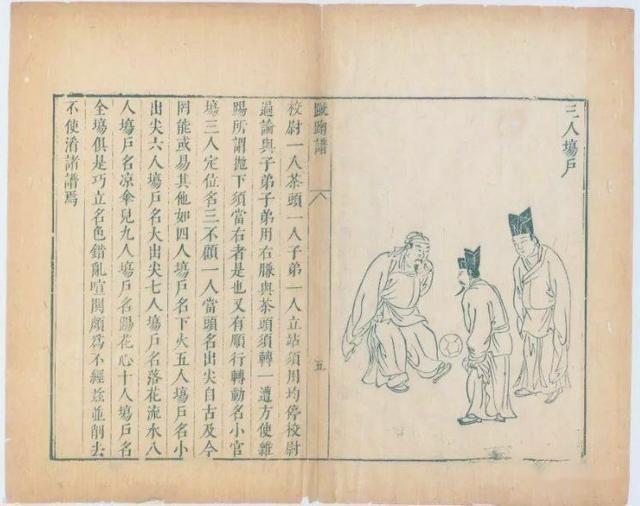 三人塲戶
蹴踘譜
五
校尉一人茶頭一人子弟一人立站須用均停校尉
過論與子弟子弟用右臁與茶頭須轉一遭方使雜
踢所謂拋下須當右者是也又有順行轉動名小官
塲三人定位名三不顧一人當頭名出尖自古及今
罔能或易其他如四人塲戶名下火五人塲戶名小
出尖六人塲戶名大出尖七人塲戶名落花流水八
人塲戶名凉傘兒九人塲戶名踢花心十人塲戶名
全塲俱是巧立名色錯亂喧鬨頗爲不經茲並削去
不使淆諸譜焉